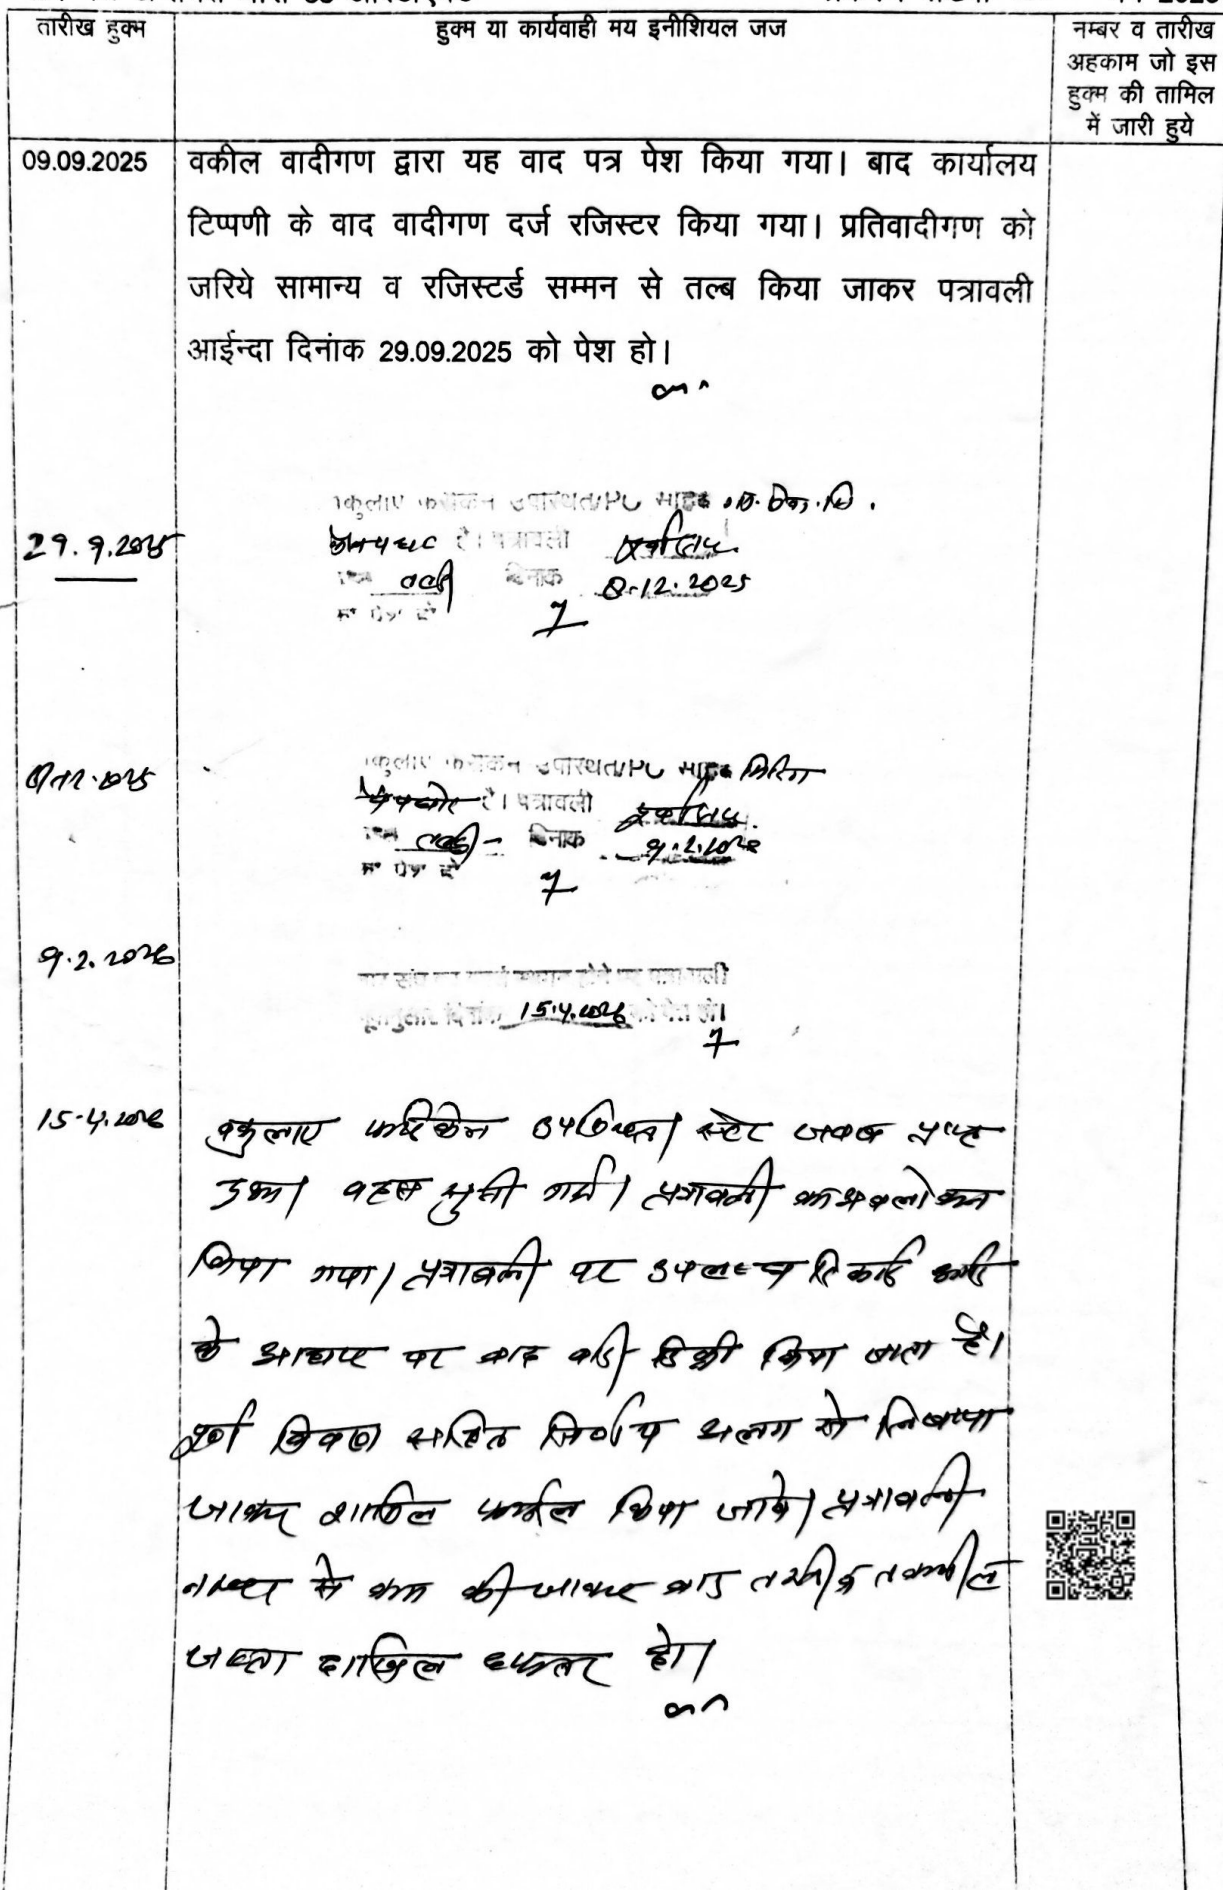 तारीख हुक्म
हुक्म या कार्यवाही मय इनीशियल जज
नम्बर व तारीख
अहकाम जो इस
हुक्म की तामिल
में जारी हुये
09.09.2025
वकील वादीगण द्वारा यह वाद पत्र पेश किया गया। बाद कार्यालय
टिप्पणी के वाद वादीगण दर्ज रजिस्टर किया गया। प्रतिवादीगण को
जरिये सामान्य व रजिस्टर्ड सम्मन से तल्ब किया जाकर पत्रावली
आईन्दा दिनांक 29.09.2025 को पेश हो।
उपस्थित/PO साहब
29.9.2025
है। पत्रावली
दिनांक 8.12.2025
उपस्थित/PO साहब मिटिंग
है। पत्रावली
दिनांक 9.2.2026
9.2.2026
होने पर पत्रावली
दिनांक 15.4.2026 को पेश हो।
15.4.2026
वकुलाए फरिकेन उपस्थित। स्टेट जवाब प्राप्त
हुआ। बहस सुनी गई। पत्रावली का अवलोकन
किया गया। पत्रावली पर उपलब्ध रिकार्ड
के आधार पर वाद वादी डिक्री किया जाता है।
पूर्ण विवरण सहित निर्णय अलग से लिखाया
जाकर शामिल फाईल किया जावे। पत्रावली
नम्बर से कम की जाकर बाद तकमील
जाब्ता दाखिल दफ्तर हो।